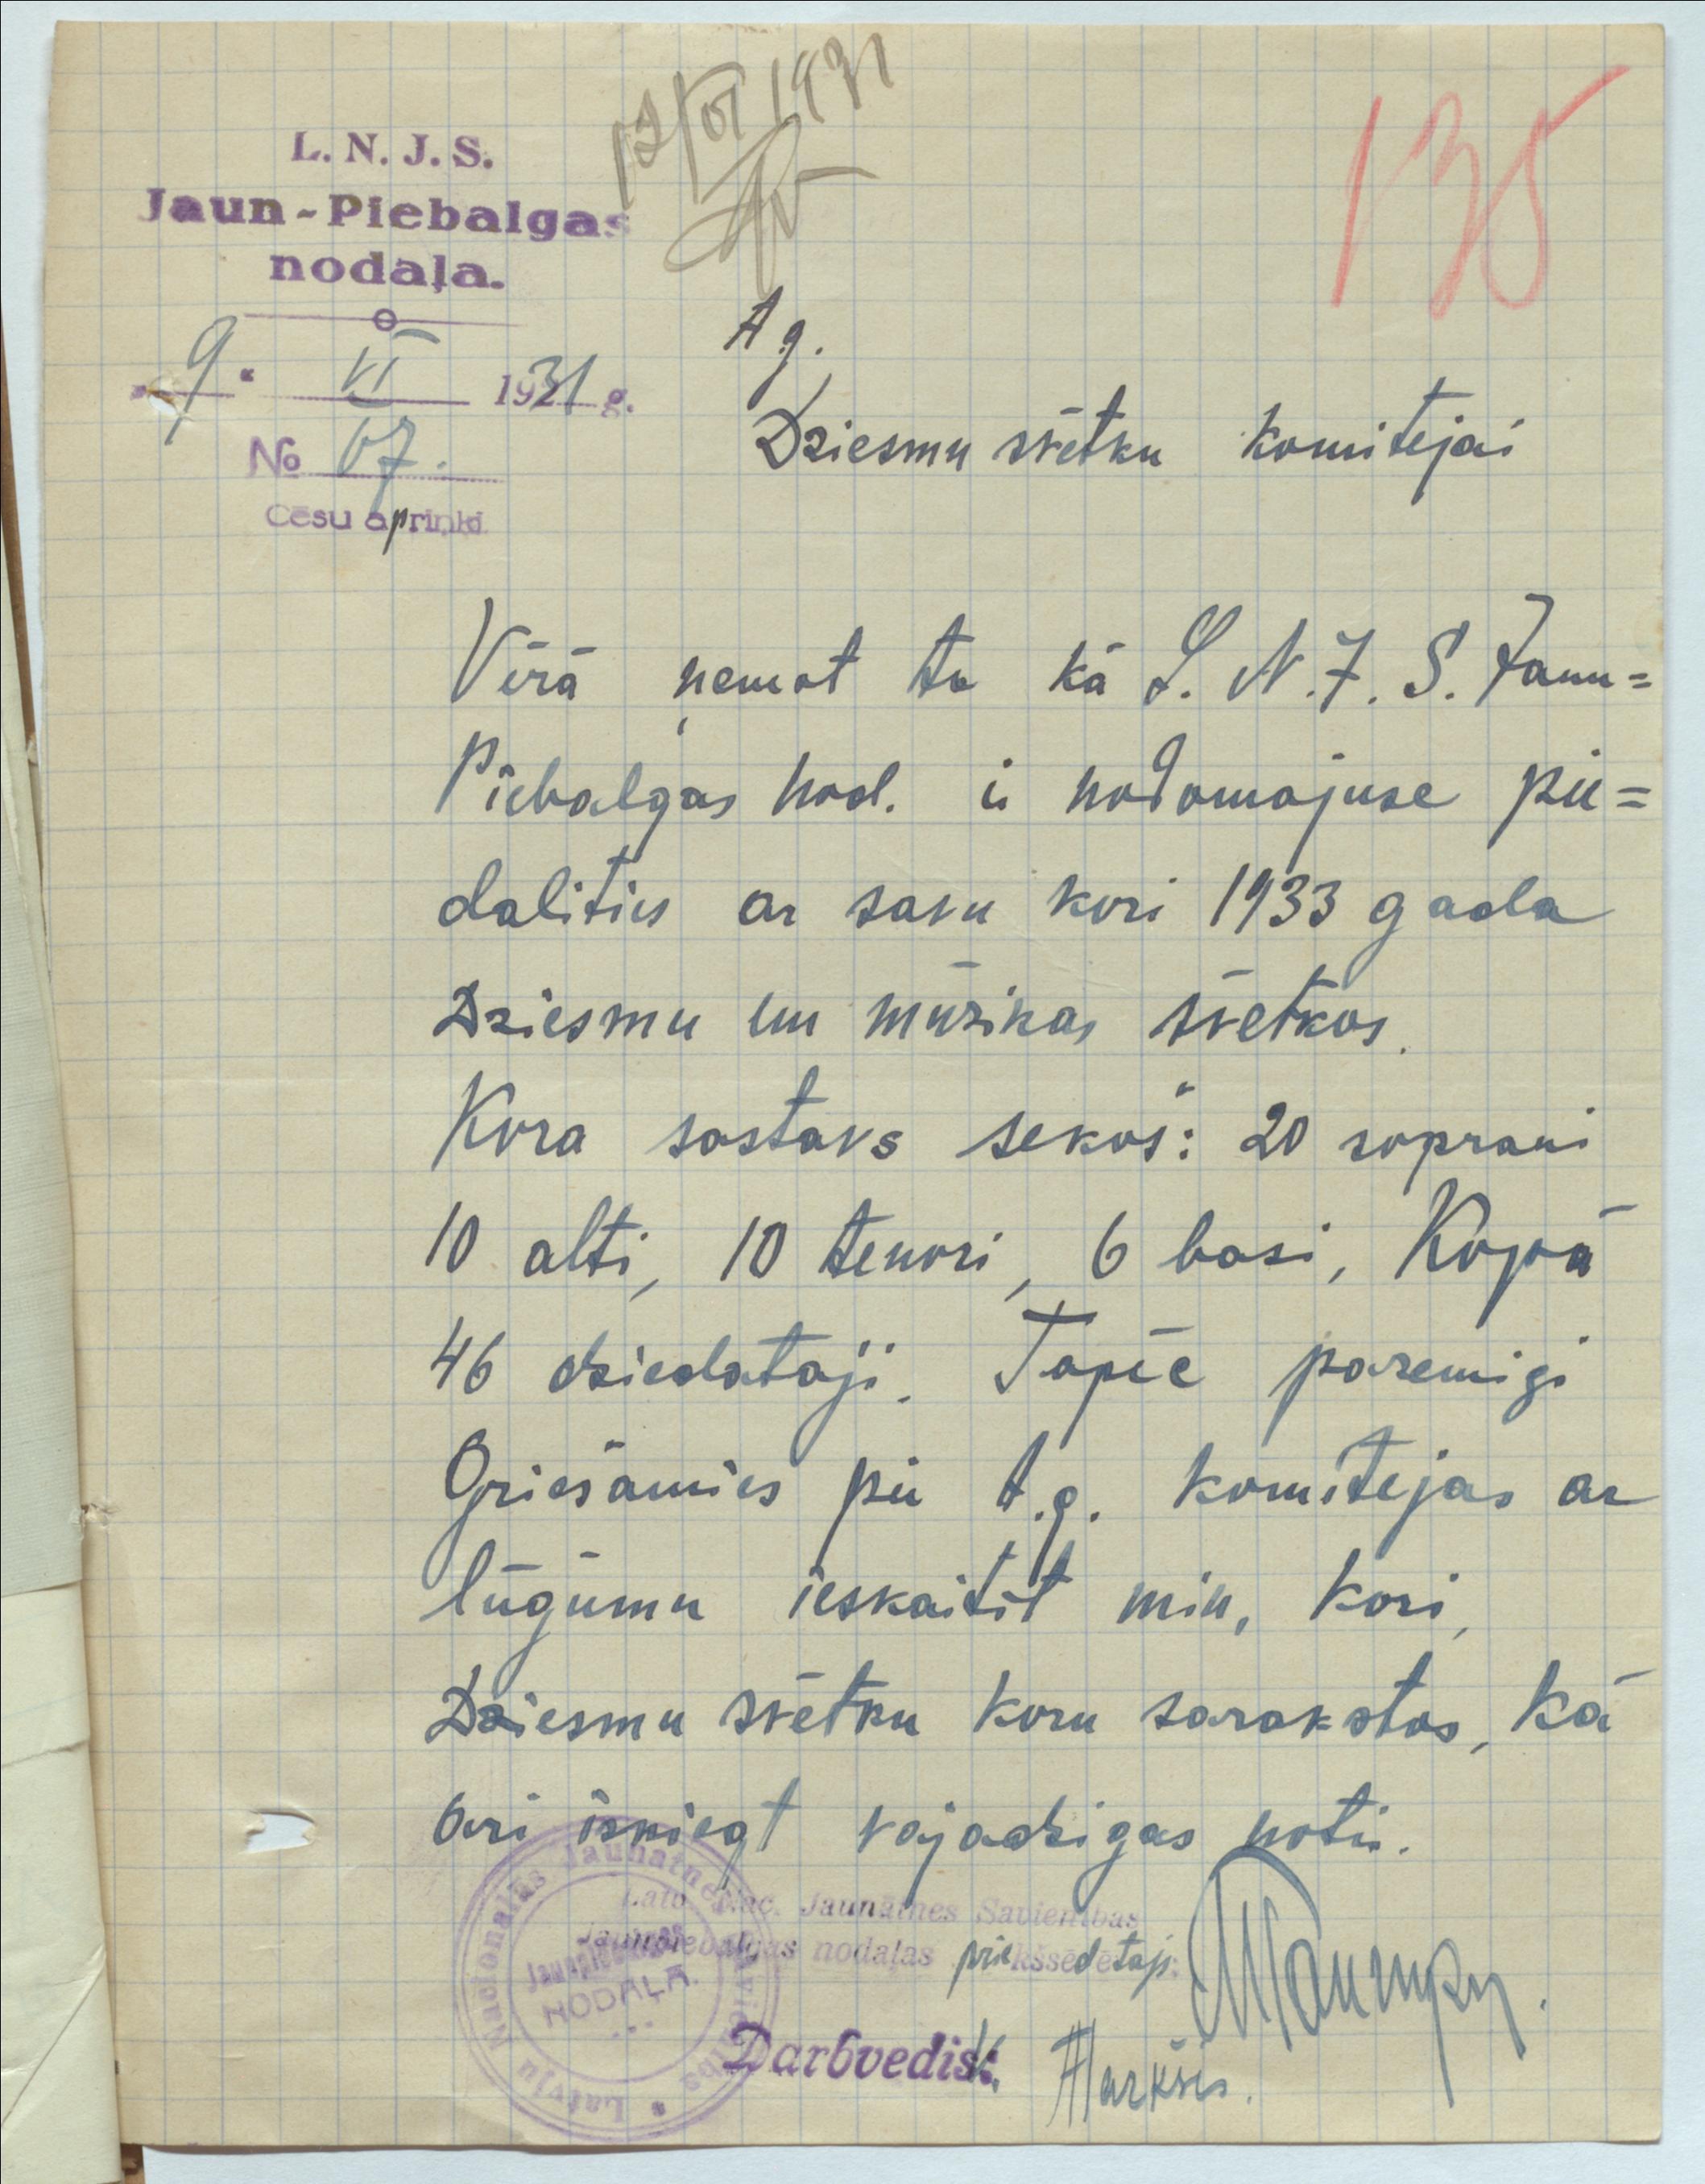 12/VI 1931
135
L. N. J. S.
Jaun-Piebalgas
nodaļa.
"9" VI 1931 g.
No 67.
Cēsu apriņķī
A.g.
Dziesmu svētku komitejai
Vērā ņemot to kā L. N. J. S. Jaun=
Piebalgas nod. ir nodomajuse pie=
dalities ar savu kori 1933 gada
Dziesmu un mūzikas svētkos.
Kora sastavs sekoš: 20 soprani
10 alti, 10 tenori, 6 basi, Kopā
46 dziedataji. Tapēc pazemigi
Griešamies pie A.g. komitejas ar
lūgumu ieskaitit min, kori,
Dziesmu svētku koru sarakstos, kā
ari isniegt vajadzigas notis.
Latv. Nac. Jaunatnes Savienības
Jaunpiebalgas nodaļas priekšsēdētajs:
Darbvedis:
Latvju Nacionalās Jaunatnes Savienības
Jaunpiebalgas
NODAĻA.